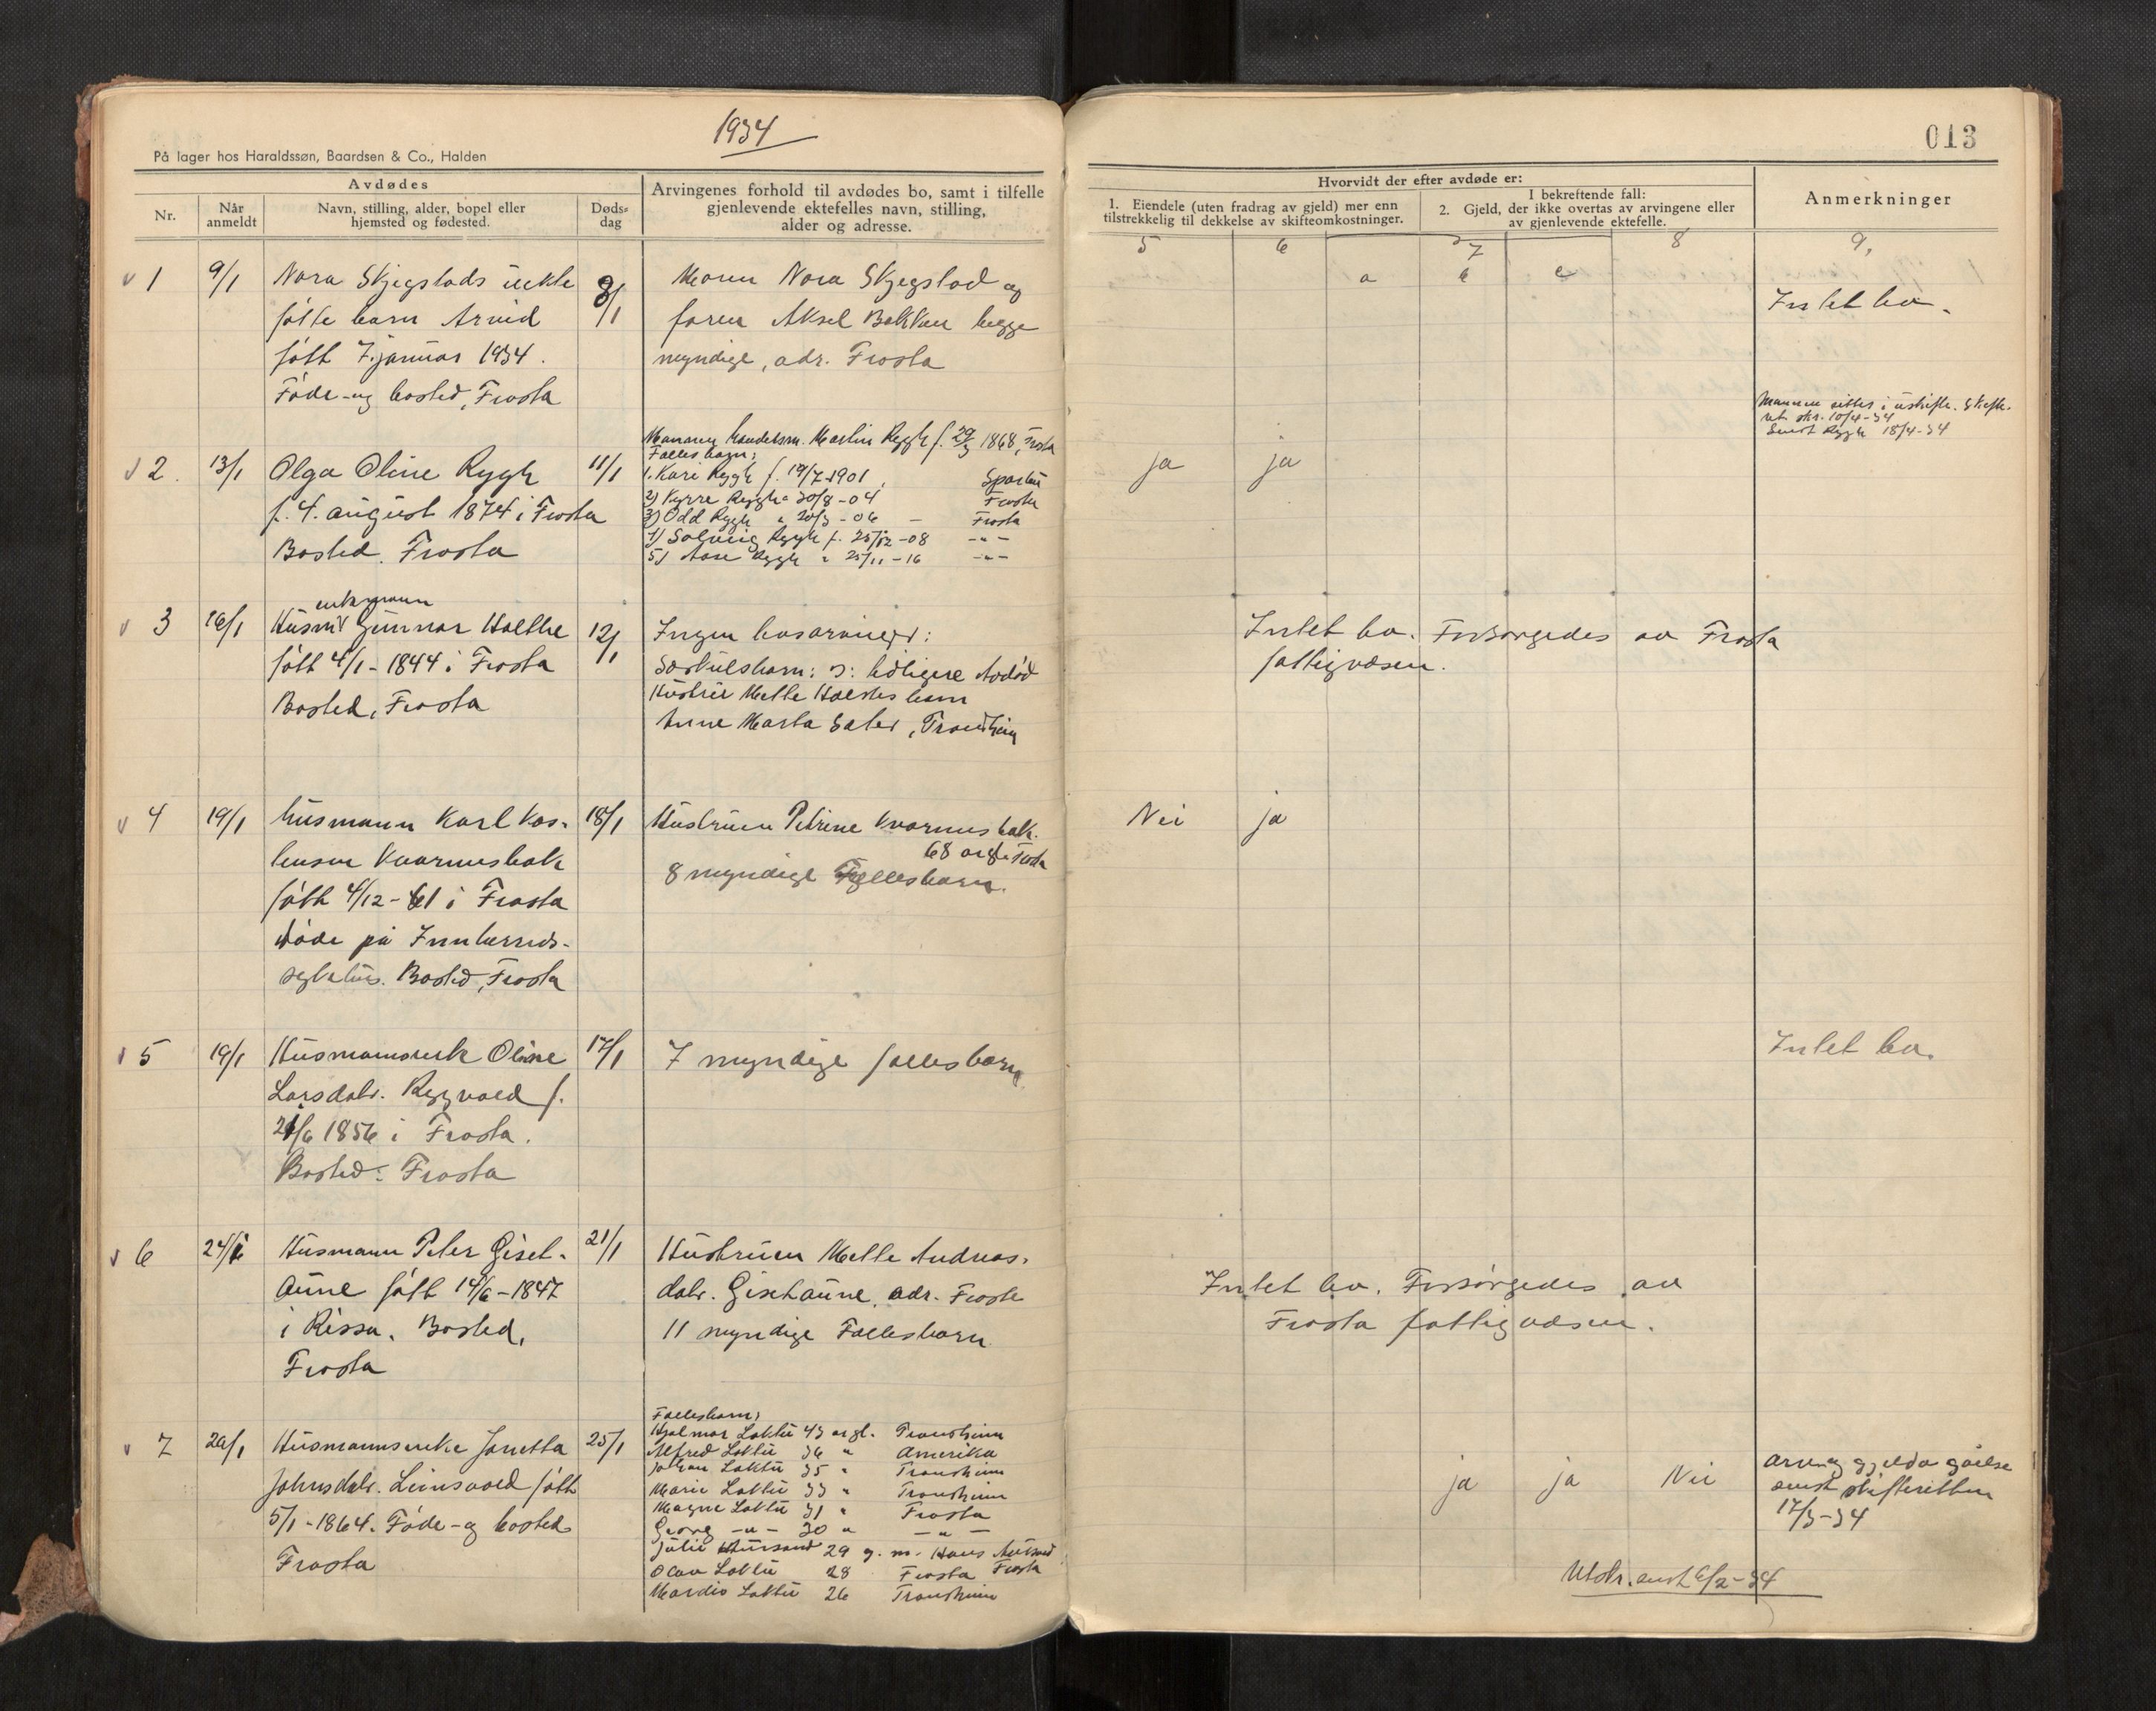 1934
013
På lager hos Haraldssøn, Baardsen & Co., Halden
Avdødes
Nr.
Når anmeldt
Navn, stilling, alder, bopel eller hjemsted og fødested.
Døds-dag
Arvingenes forhold til avdødes bo, samt i tilfelle
gjenlevende ektefelles navn, stilling,
alder og adresse.
Hvorvidt der efter avdøde er:
1. Eiendele (uten fradrag av gjeld) mer enn
tilstrekkelig til dekkelse av skifteomkostninger.
I bekreftende fall:
2. Gjeld, der ikke overtas av arvingene eller
av gjenlevende ektefelle.
Anmerkninger
5 6 7 8 9.
a b c
1 9/1 Nora Skjegstads uekte 8/1
fødte barn Arvid
født 7. januar 1934.
Føde- og bosted, Frosta
Moren Nora Skjegstad og
faren Aksel Bakken begge
myndige, adr. Frosta
Intet bo.
2. 13/1 Olga Oline Rygh 11/1
f. 4. august 1874 i Frosta
Bosted. Frosta
Mannen handelsm. Martin Rygh f. 29/3 1868, Frosta
Felles barn:
1. Kari Rygh f. 19/7 1901, Sparbu
2) Kyrre Rygh " 30/8 - 04 Frosta
3) Odd Rygh " 20/3 - 06 - Frosta
4) Solveig Rygh f. 25/12 - 08 - " -
5) Aase Rygh " 25/11 - 16 - " -
ja ja
Mannen sitter i uskifte. Skifte-
att. skr. 10/4-34
Sendt Rygh 18/4-34
3 16/1 enkemann
Husm. Gunnar Holthe 12/1
født 4/1 - 1844 i Frosta
Bosted, Frosta
Ingen livsarvinger:
Særkulsbarn: o: tidligere avdød
Hustru Mette Holthes barn
Anne Marta Sæter, Trondheim
Intet bo. Forsørgedes av Frosta
fattigvæsen.
4 19/1 husmann Karl Kas- 18/1
tensen Kvarmesbak
født 4/12 - 61 i Frosta
døde på Innherreds-
sykehus. Bosted, Frosta
Hustruen Petrine Kvarmesbak.
68 år gl. Frosta
8 myndige Fellesbarn.
Nei ja
5 19/1 Husmannsenke Oline 17/1
Larsdatr. Ryggvold f.
21/6 1856 i Frosta.
Bosted: Frosta
7 myndige fellesbarn
Intet bo.
6 24/1 Husmann Peter Giset- 21/1
aune født 14/6 - 1847
i Rissa. Bosted,
Frosta
Hustruen Mette Andreas-
datr. Gisetaune, adr. Frosta
11 myndige Fellesbarn
Intet bo. Forsørgedes av
Frosta fattigvæsen.
7 26/1 Husmannsenke Janetta 25/1
Johnsdatr. Leinsvold født
5/1 - 1864. Føde- og bosted
Frosta
Fellesbarn:
Hjalmar Loktu 43 år gl. Trondheim
Alfred Loktu 36 " Amerika
Johan Loktu 35 " Trondheim
Marie Loktu 33 " Trondheim
Magne Loktu 31 " Frosta
Georg - " - 30 " - " -
Julie Aursand 29 g. m. Hans Aursand
Frosta
Olav Loktu 28 Frosta
Mardis Loktu 26 Trondheim
ja ja Nei
Arv og gjelds
sendt skifteretten
17/3-34
Utskr. sendt 6/2-34